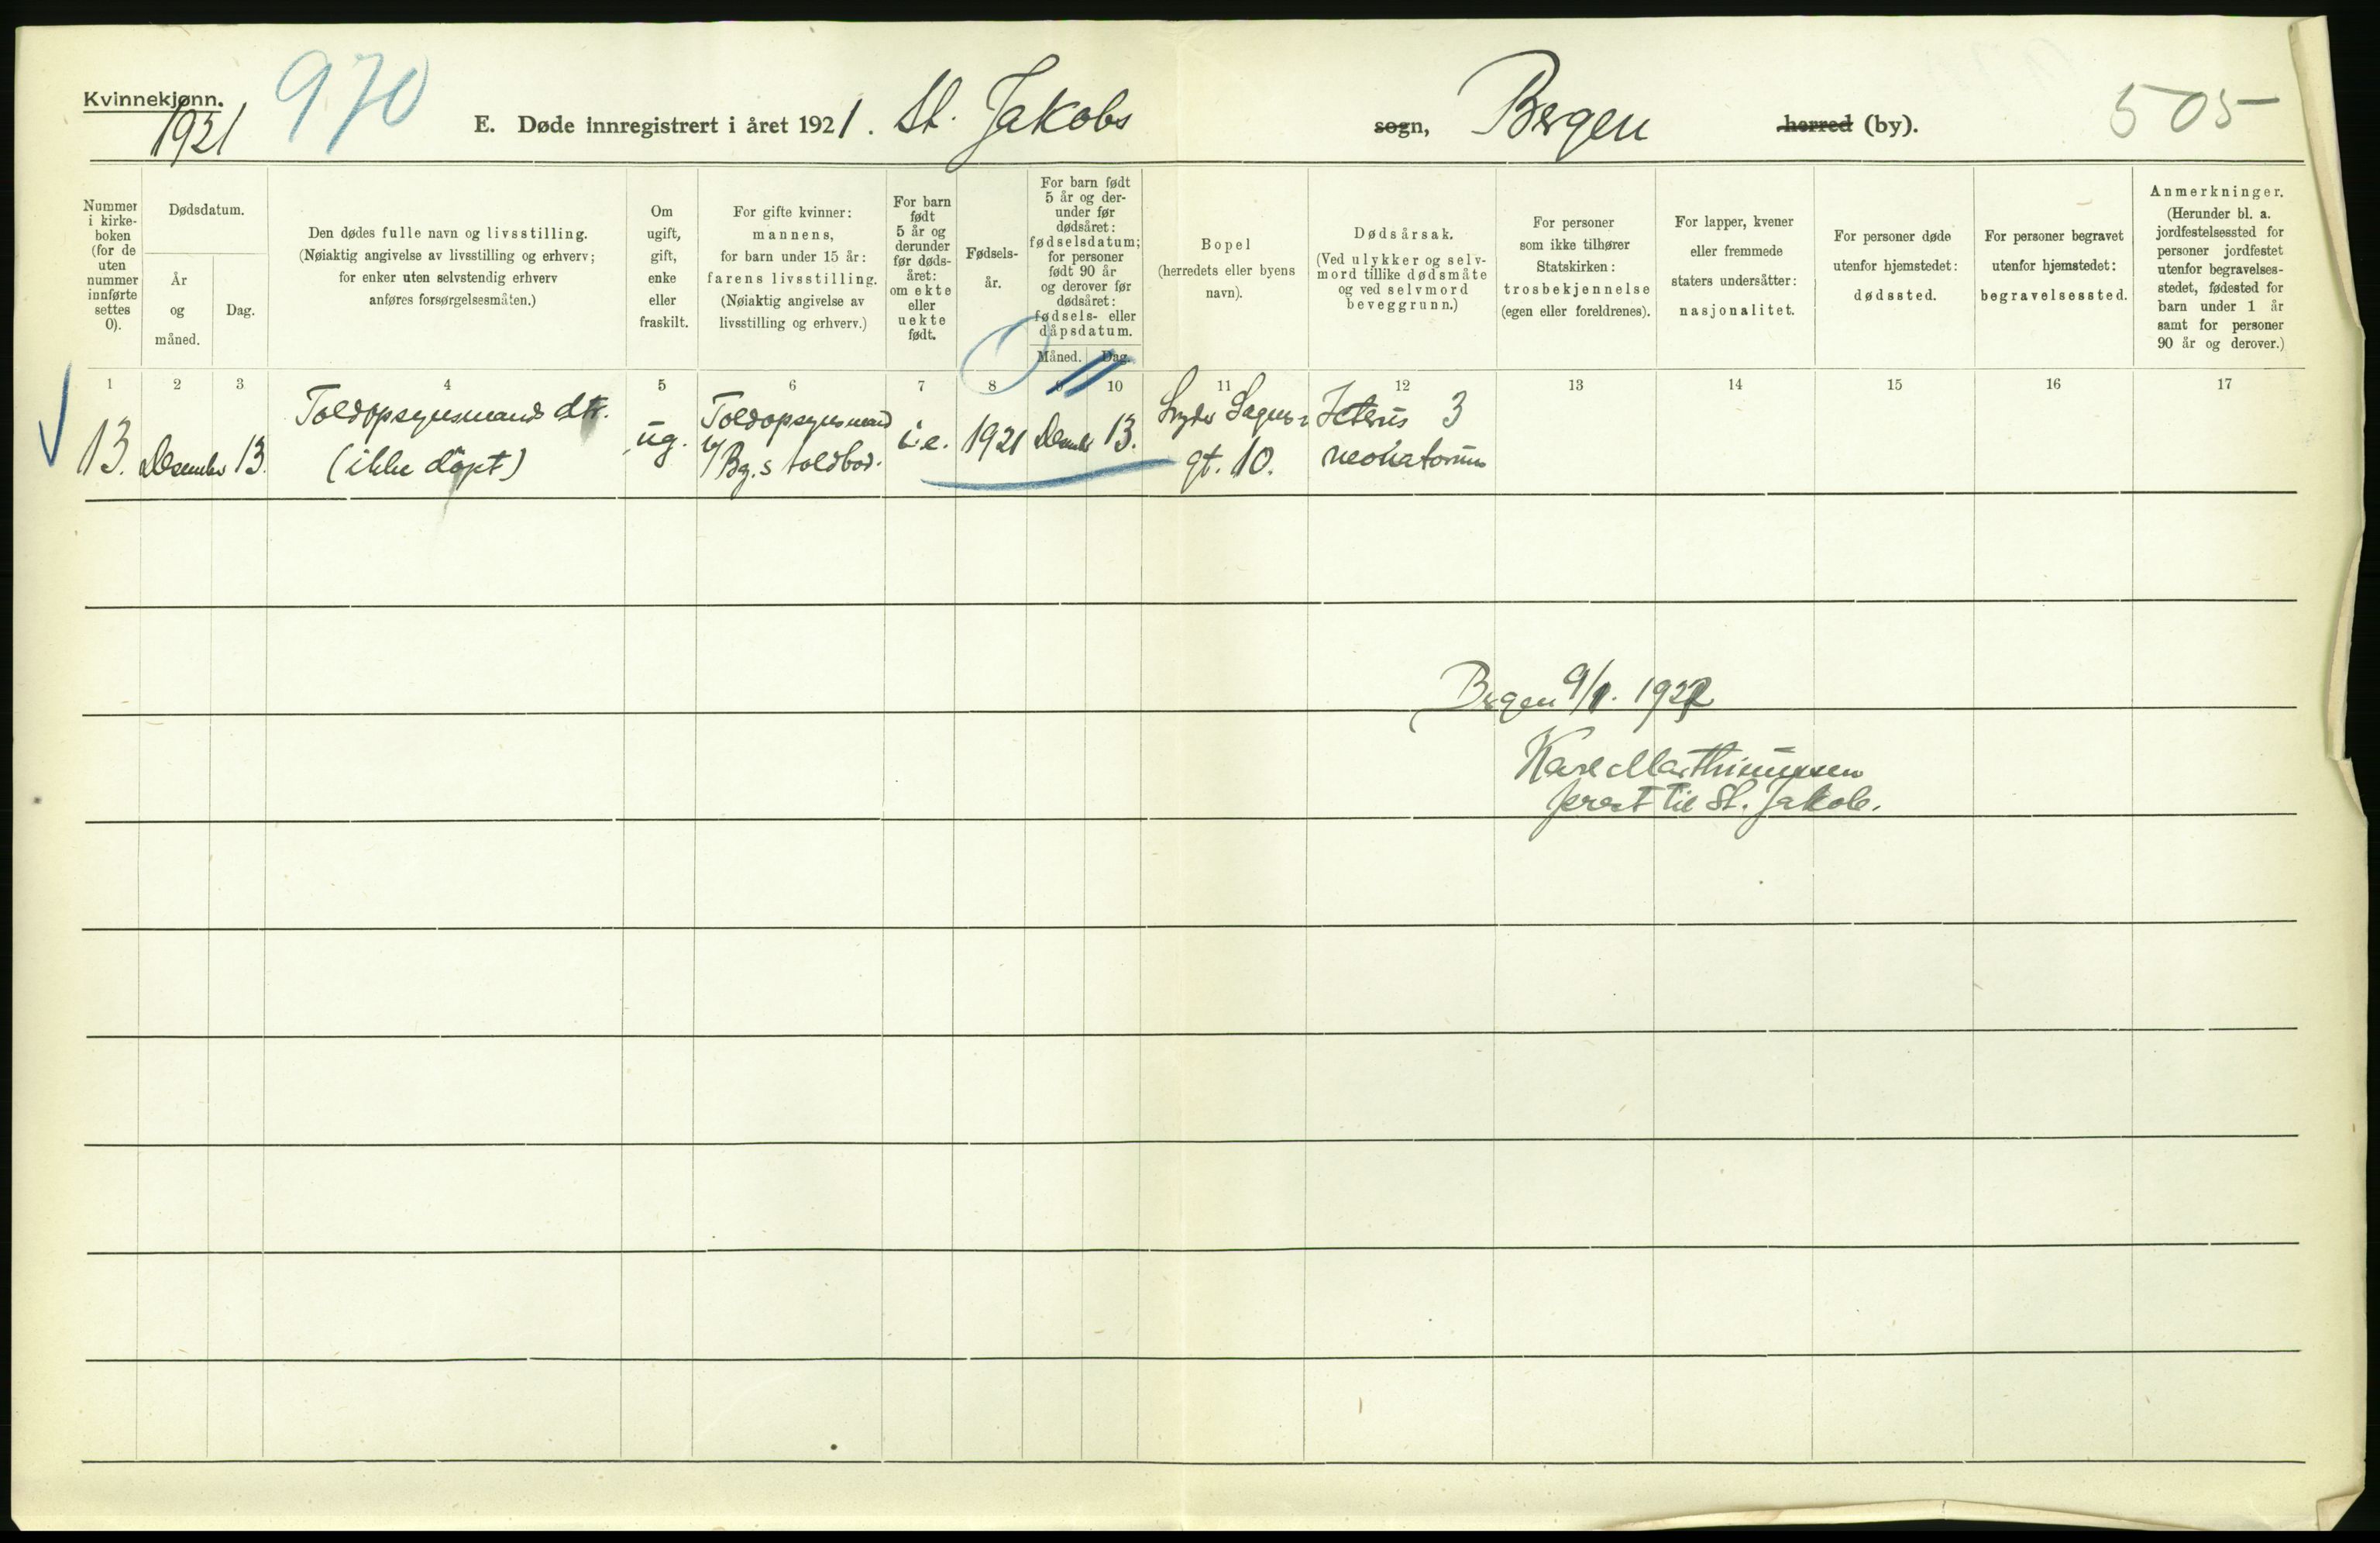 Kvinnekjønn.
1921
970
E. Døde innregistrert i året 1921. St. Jakobs sogn, Bergen herred (by).
505
Nummer i kirke-boken (for de uten nummer innførte settes 0).
Dødsdatum.
År og måned.
Dag.
Den dødes fulle navn og livsstilling.
(Nøiaktig angivelse av livsstilling og erhverv;
for enker uten selvstendig erhverv
anføres forsørgelsesmåten.)
Om
ugift,
gift,
enke
eller
fraskilt.
For gifte kvinner:
mannens,
for barn under 15 år:
farens livsstilling.
(Nøiaktig angivelse av
livsstilling og erhverv.)
For barn
født
5 år og
derunder
før døds-
året:
om ekte
eller
uekte
født.
Fødsels-
år.
For barn født
5 år og der-
under før
dødsåret:
fødselsdatum;
for personer
født 90 år
og derover før
dødsåret:
fødsels- eller
dåpsdatum.
Måned. Dag.
Bopel
(herredets eller byens
navn).
Dødsårsak.
(Ved ulykker og selv-
mord tillike dødsmåte
og ved selvmord
beveggrunn.)
For personer
som ikke tilhører
Statskirken:
trosbekjennelse
(egen eller foreldrenes).
For lapper, kvener
eller fremmede
staters undersåtter:
nasjonalitet.
For personer døde
utenfor hjemstedet:
dødssted.
For personer begravet
utenfor hjemstedet:
begravelsessted.
Anmerkninger.
(Herunder bl. a.
jordfestelsessted for
personer jordfestet
utenfor begravelses-
stedet, fødested for
barn under 1 år
samt for personer
90 år og derover.)
1 2 3 4 5 6 7 8 9 10 11 12 13 14 15 16 17
13. Desember 13.
Toldopsynsmands dtr.
(ikke døpt)
ug.
Toldopsynsmand
v/ Bg.s toldbod.
i.e. 1921 Desember 13.
Lyder Sagens
gt. 10.
Icterus 3
neonatorum
Bergen 9/1. 1922
Karl Marthinussen
prest til St. Jakob.